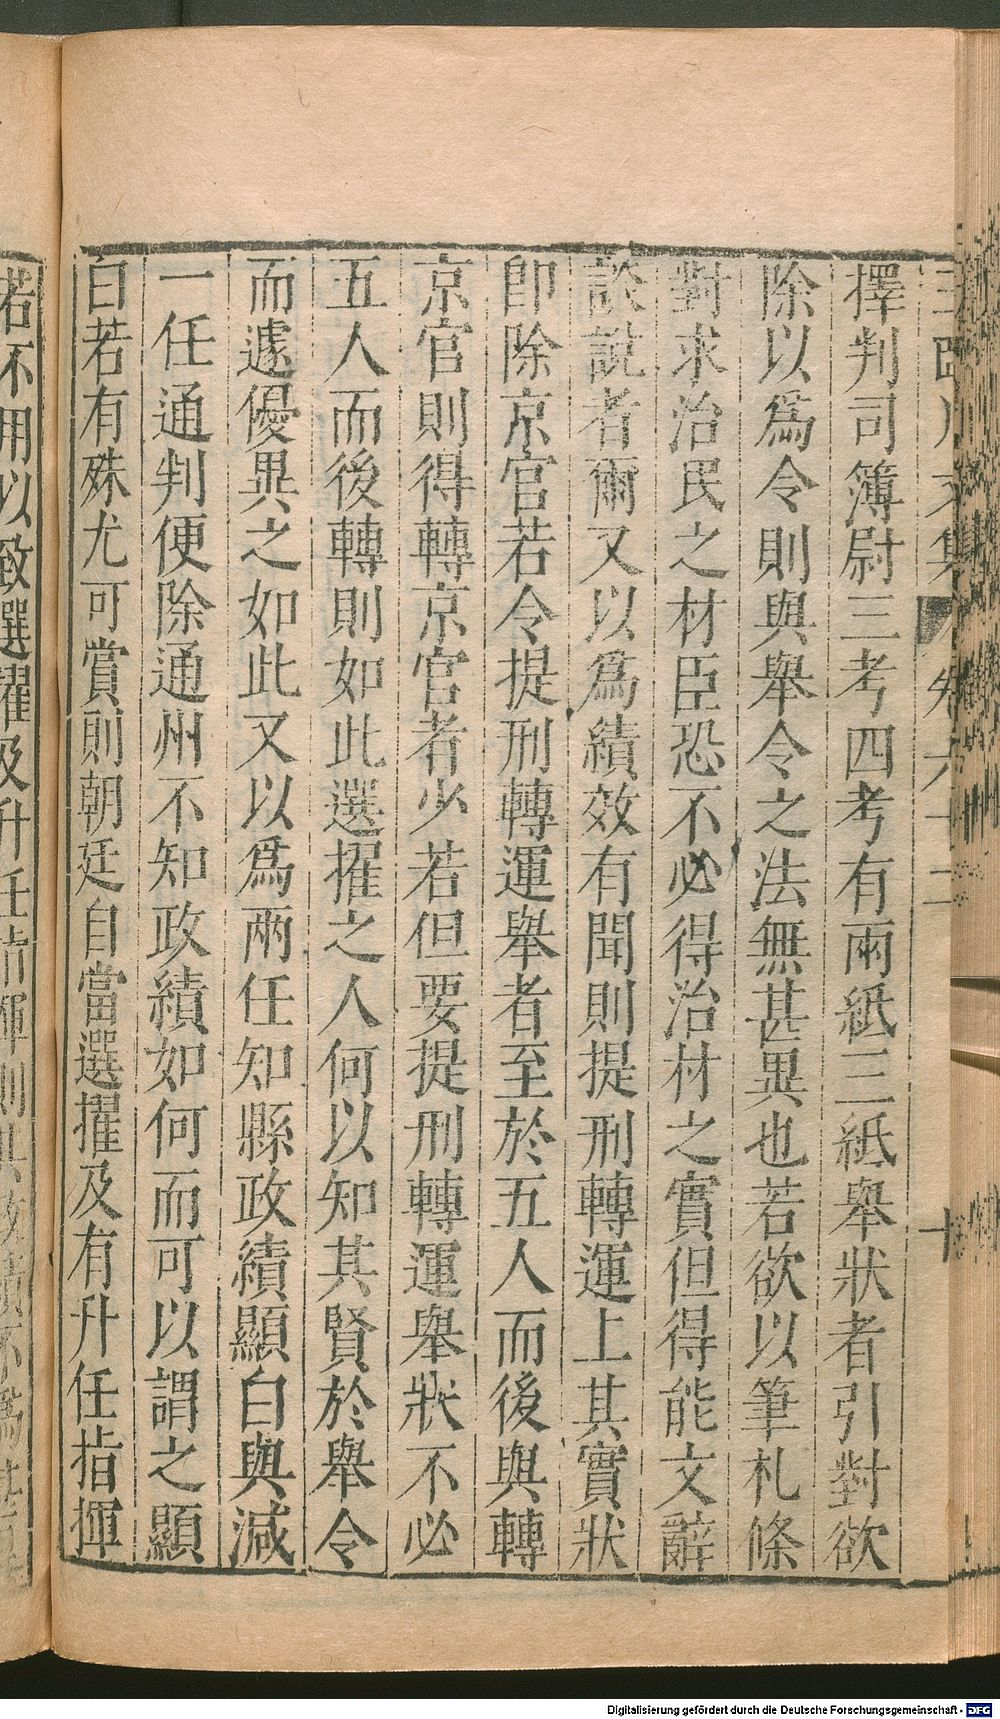 擇判司簿尉三考四考有兩紙三紙舉狀者引對欲
除以爲令則與舉令之法無甚異也若欲以筆札條
對求治民之材臣恐不必得治材之實但得能文辭
談說者爾又以爲績效有聞則提刑轉運上其實狀
即除京官若令提刑轉運舉者至於五人而後與轉
京官則得轉京官者少若但要提刑轉運舉狀不必
五人而後轉則如此選擢之人何以知其賢於舉令
而遽優異之如此又以爲兩任知縣政績顯白與減
一任通判便除通州不知政績如何而可以謂之顯
白若有殊尤可賞則朝廷自當選擢及有升任指揮
若不用以致選擢及升任指揮則其政績不
Digitalisierung gefördert durch die Deutsche Forschungsgemeinschaft - DFG